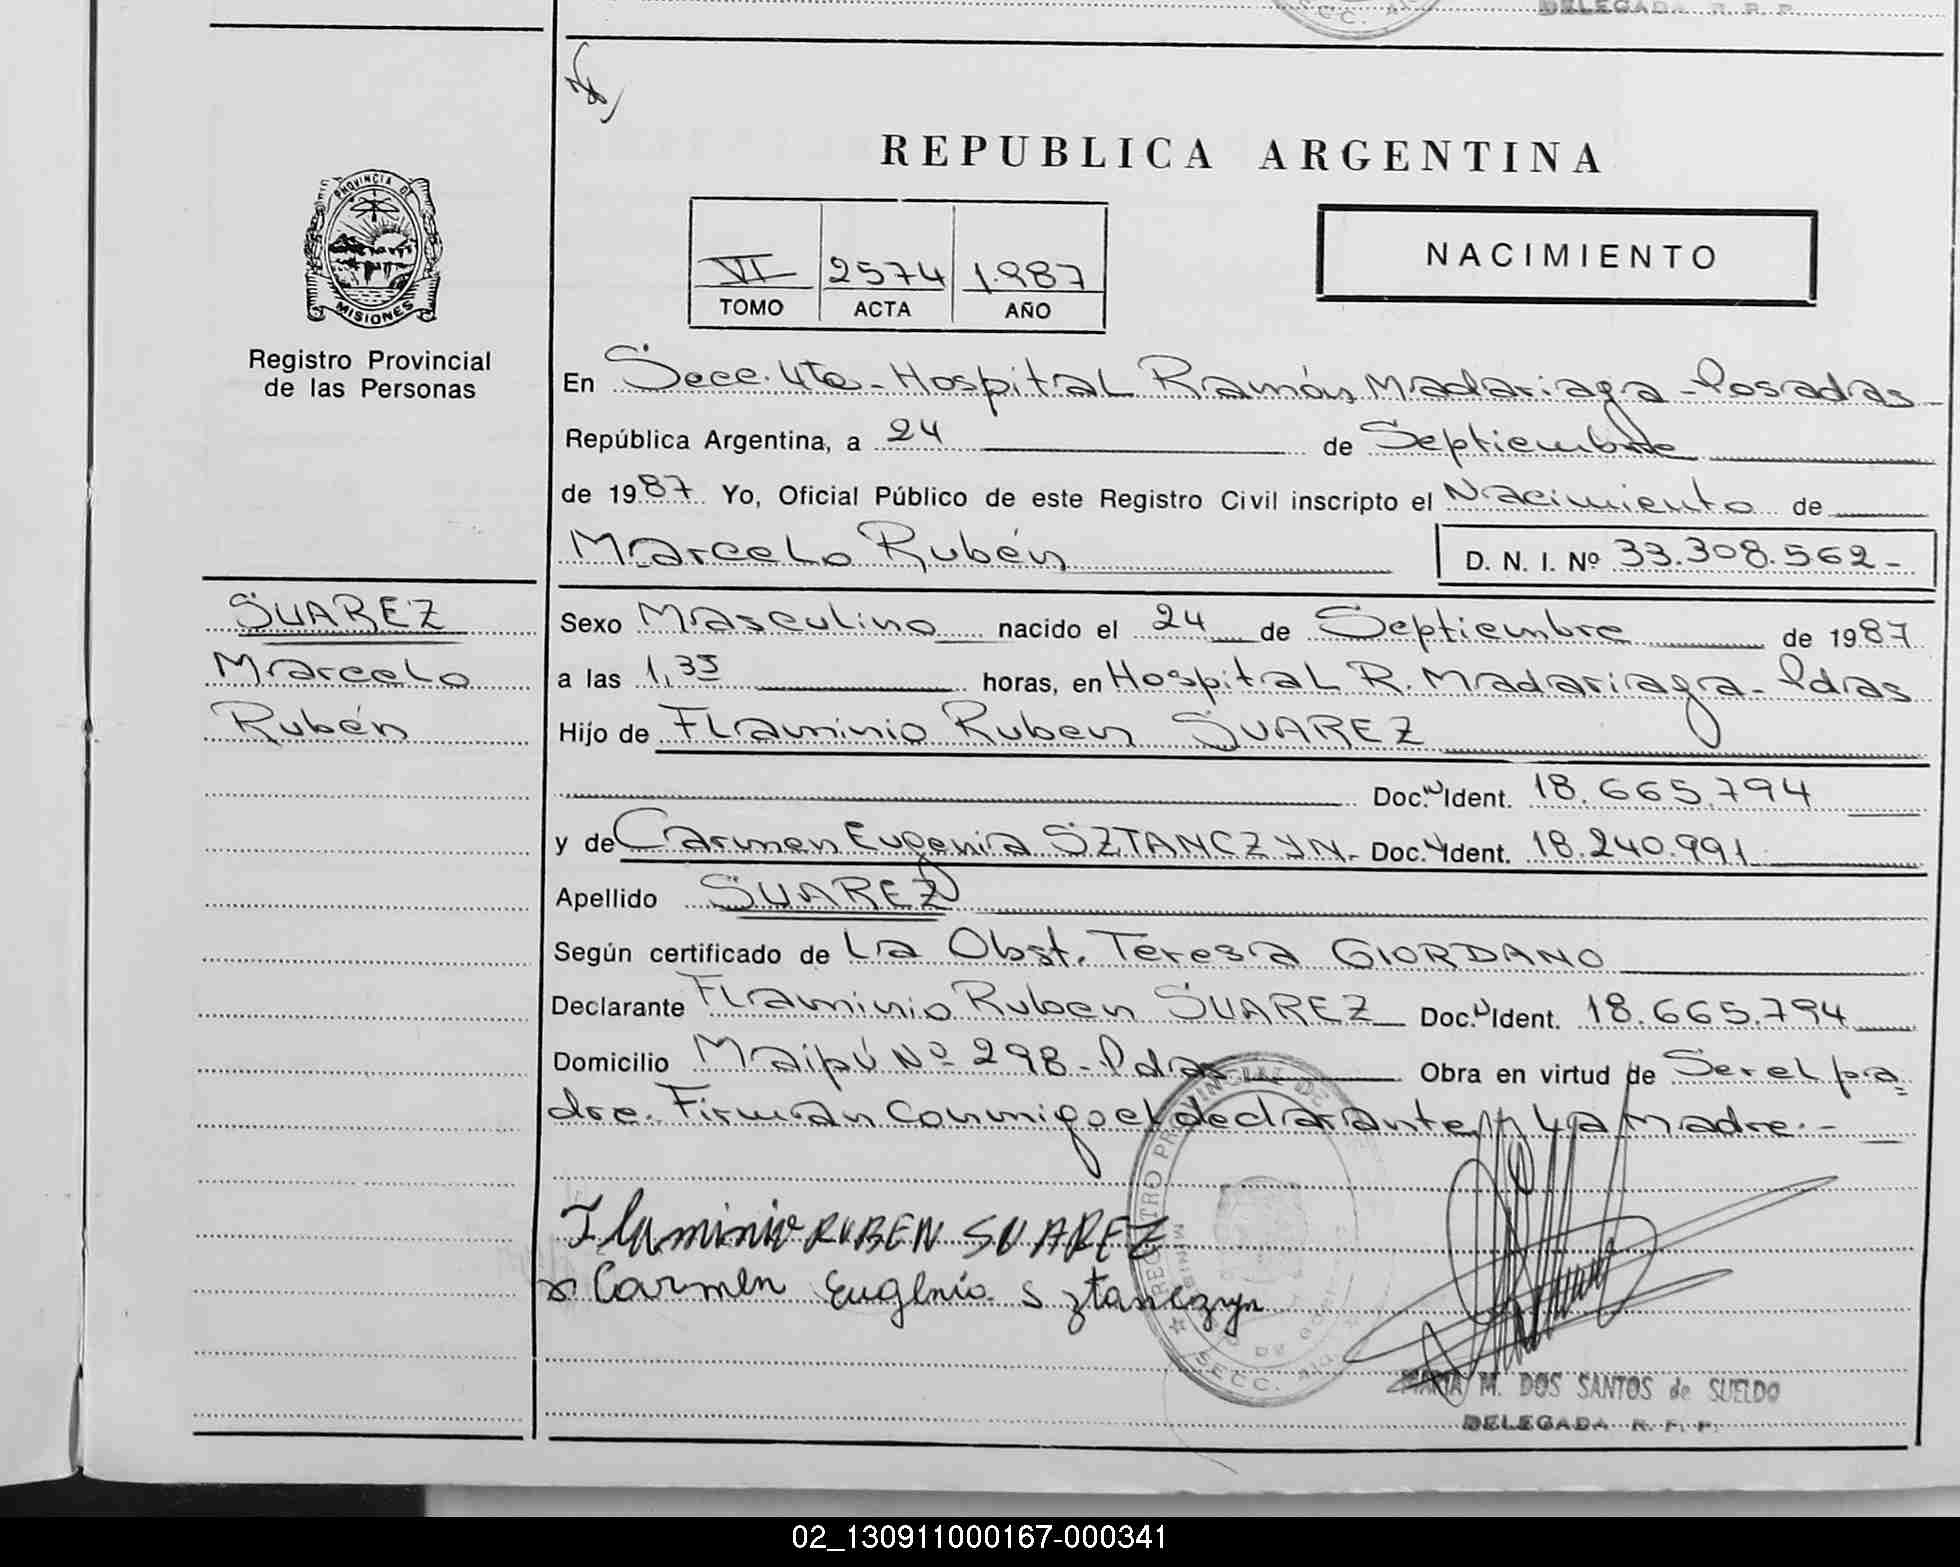 SECC.
DELEGADA R. P. P.
REPUBLICA ARGENTINA
PROVINCIA DE
MISIONES
Registro Provincial
de las Personas
VI 2574 1.987
TOMO ACTA AÑO
NACIMIENTO
En Secc. 4ta - Hospital Ramón Madariaga - Posadas
República Argentina, a 24 de Septiembre
de 1987 Yo, Oficial Público de este Registro Civil inscripto el Nacimiento de
Marcelo Rubén D. N. I. Nº 33.308.562-
SUAREZ
Marcelo
Rubén
Sexo Masculino nacido el 24 de Septiembre de 1987
a las 1,35 horas, en Hospital R. Madariaga - Pdas
Hijo de Flaminio Ruben SUAREZ
Doc. Ident. 18.665.794
y de Carmen Eugenia SZTANCZYN - Doc. Ident. 18.240.991
Apellido SUAREZ
Según certificado de La Obst. Teresa GIORDANO
Declarante Flaminio Ruben SUAREZ Doc. Ident. 18.665.794
Domicilio Maipú Nº 298 - Pdas Obra en virtud de Ser el pa=
dre. Firman conmigo el declarante y La Madre.-
Flaminio RUBEN SUAREZ
Carmen Eugenia Sztanczyn
REGISTRO PROVINCIAL DE
SECC.
MARIA M. DOS SANTOS de SUELDO
DELEGADA R. P. P.
02_130911000167-000341